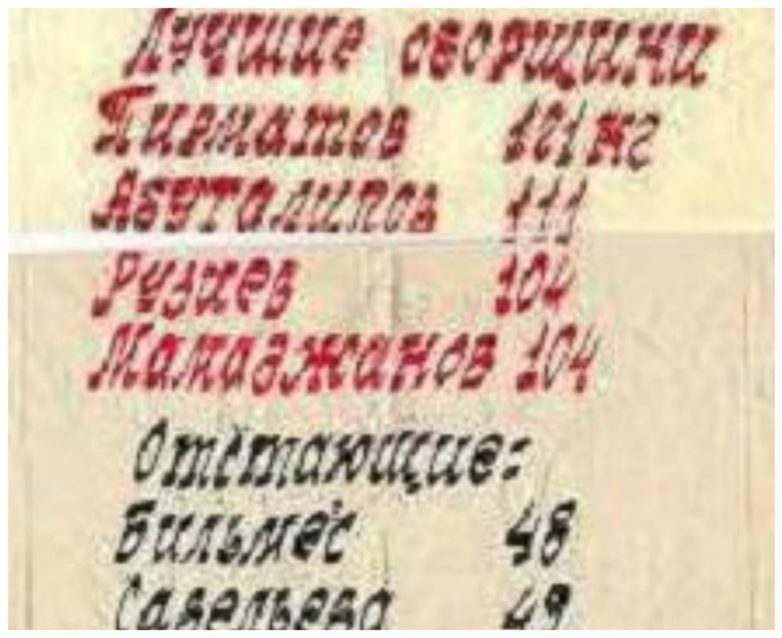 Лучшие сборщики
Пирматов 121 кг
Абуталипов 111
Рузиев 104
Мамаджанов 104
Отстающие:
Бильмес 48
Савельева 49